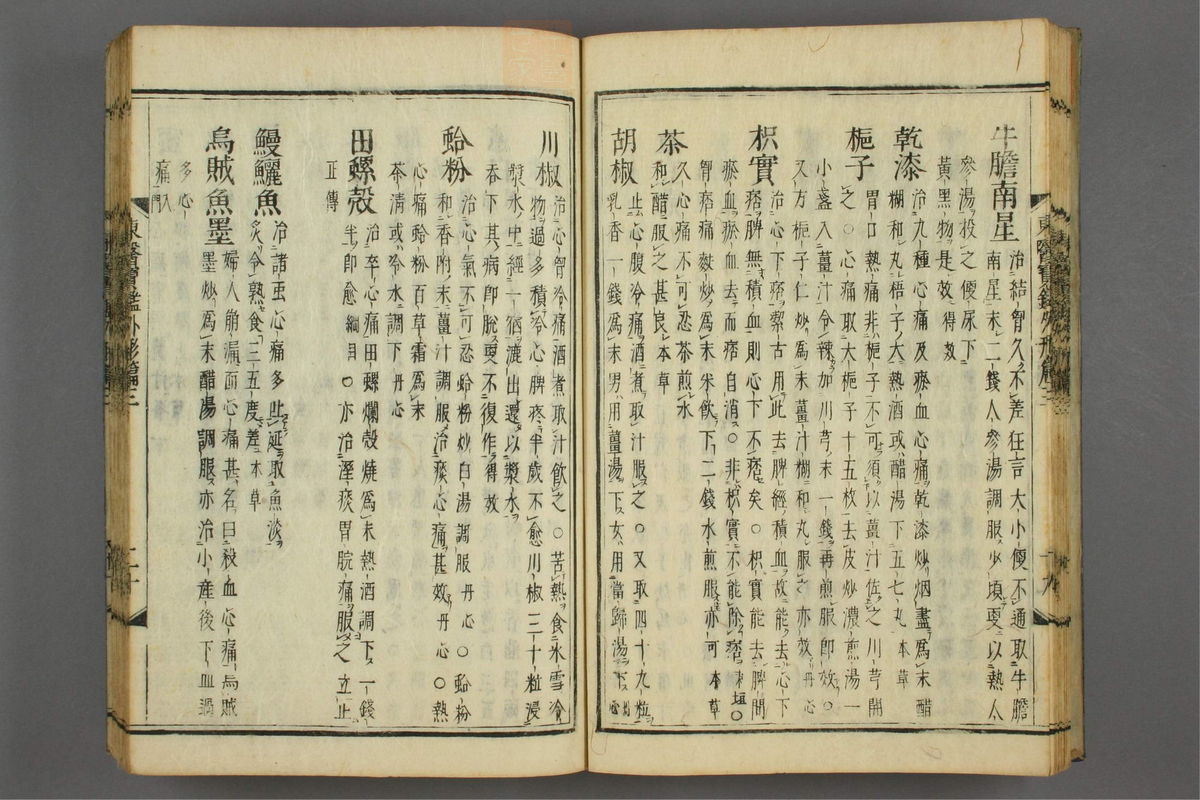 牛膽南星治結胷久不差狂言大小便不通取牛膽
南星末二錢人參湯調服少頃更以熱人
參湯投之便尿下
黃黑物是效得效
乾漆治九種心痛及瘀血心痛乾漆炒烟盡爲末醋
糊和丸梧子大熱酒或醋湯下五七丸本草
梔子胃口熱痛非梔子不可須以薑汁佐之川芎開
之○心痛取大梔子十五枚去皮炒濃煎湯一
小盞入薑汁令辣加川芎末一錢再煎服卽效○
又方梔子仁炒爲末薑汁糊和丸服之亦效丹心
枳實治心下痞潔古用此去脾經積血故能去心下
痞脾無積血則心下不痞矣○枳實能去脾間
瘀血瘀血去而痞自消○非枳實不能除痞東垣○
胷痞痛麩炒爲末米飮下二錢水煎服亦可本草
茶久心痛不可忍茶煎水
和醋服之甚良本草
胡椒止心腹冷痛酒煮取汁服之○又取四十九粒
乳香一錢爲末男用薑湯下女用當歸湯下
川椒治心胷冷痛酒煮取汁飮之○苦熱食氷雪冷
物過多積冷心脾疼半歲不愈川椒三十粒浸
漿水中經一宿漉出還以漿水
吞下其病卽脫更不復作得效
蛤粉治心氣不可忍蛤粉炒白湯調服丹心○蛤粉
和香附末薑汁調服治痰心痛甚效丹心○熱
心痛蛤粉百草霜爲末
茶淸或冷水調下丹心
田螺殼治卒心痛田螺爛殼燒爲末熱酒調下一錢
半卽愈綱目○亦治溼痰胃脘痛服之立止
正傳
鰻鱺魚治諸蟲心痛多止涎取魚淡
炙令熟食三五度差本草
烏賊魚墨婦人崩漏面心痛甚名曰殺血心痛烏賊
墨炒爲末醋湯調服亦治小産後下血過
多心
痛入門
東醫寶鑑外形篇三
十九
東醫寶鑑外形篇三
二十